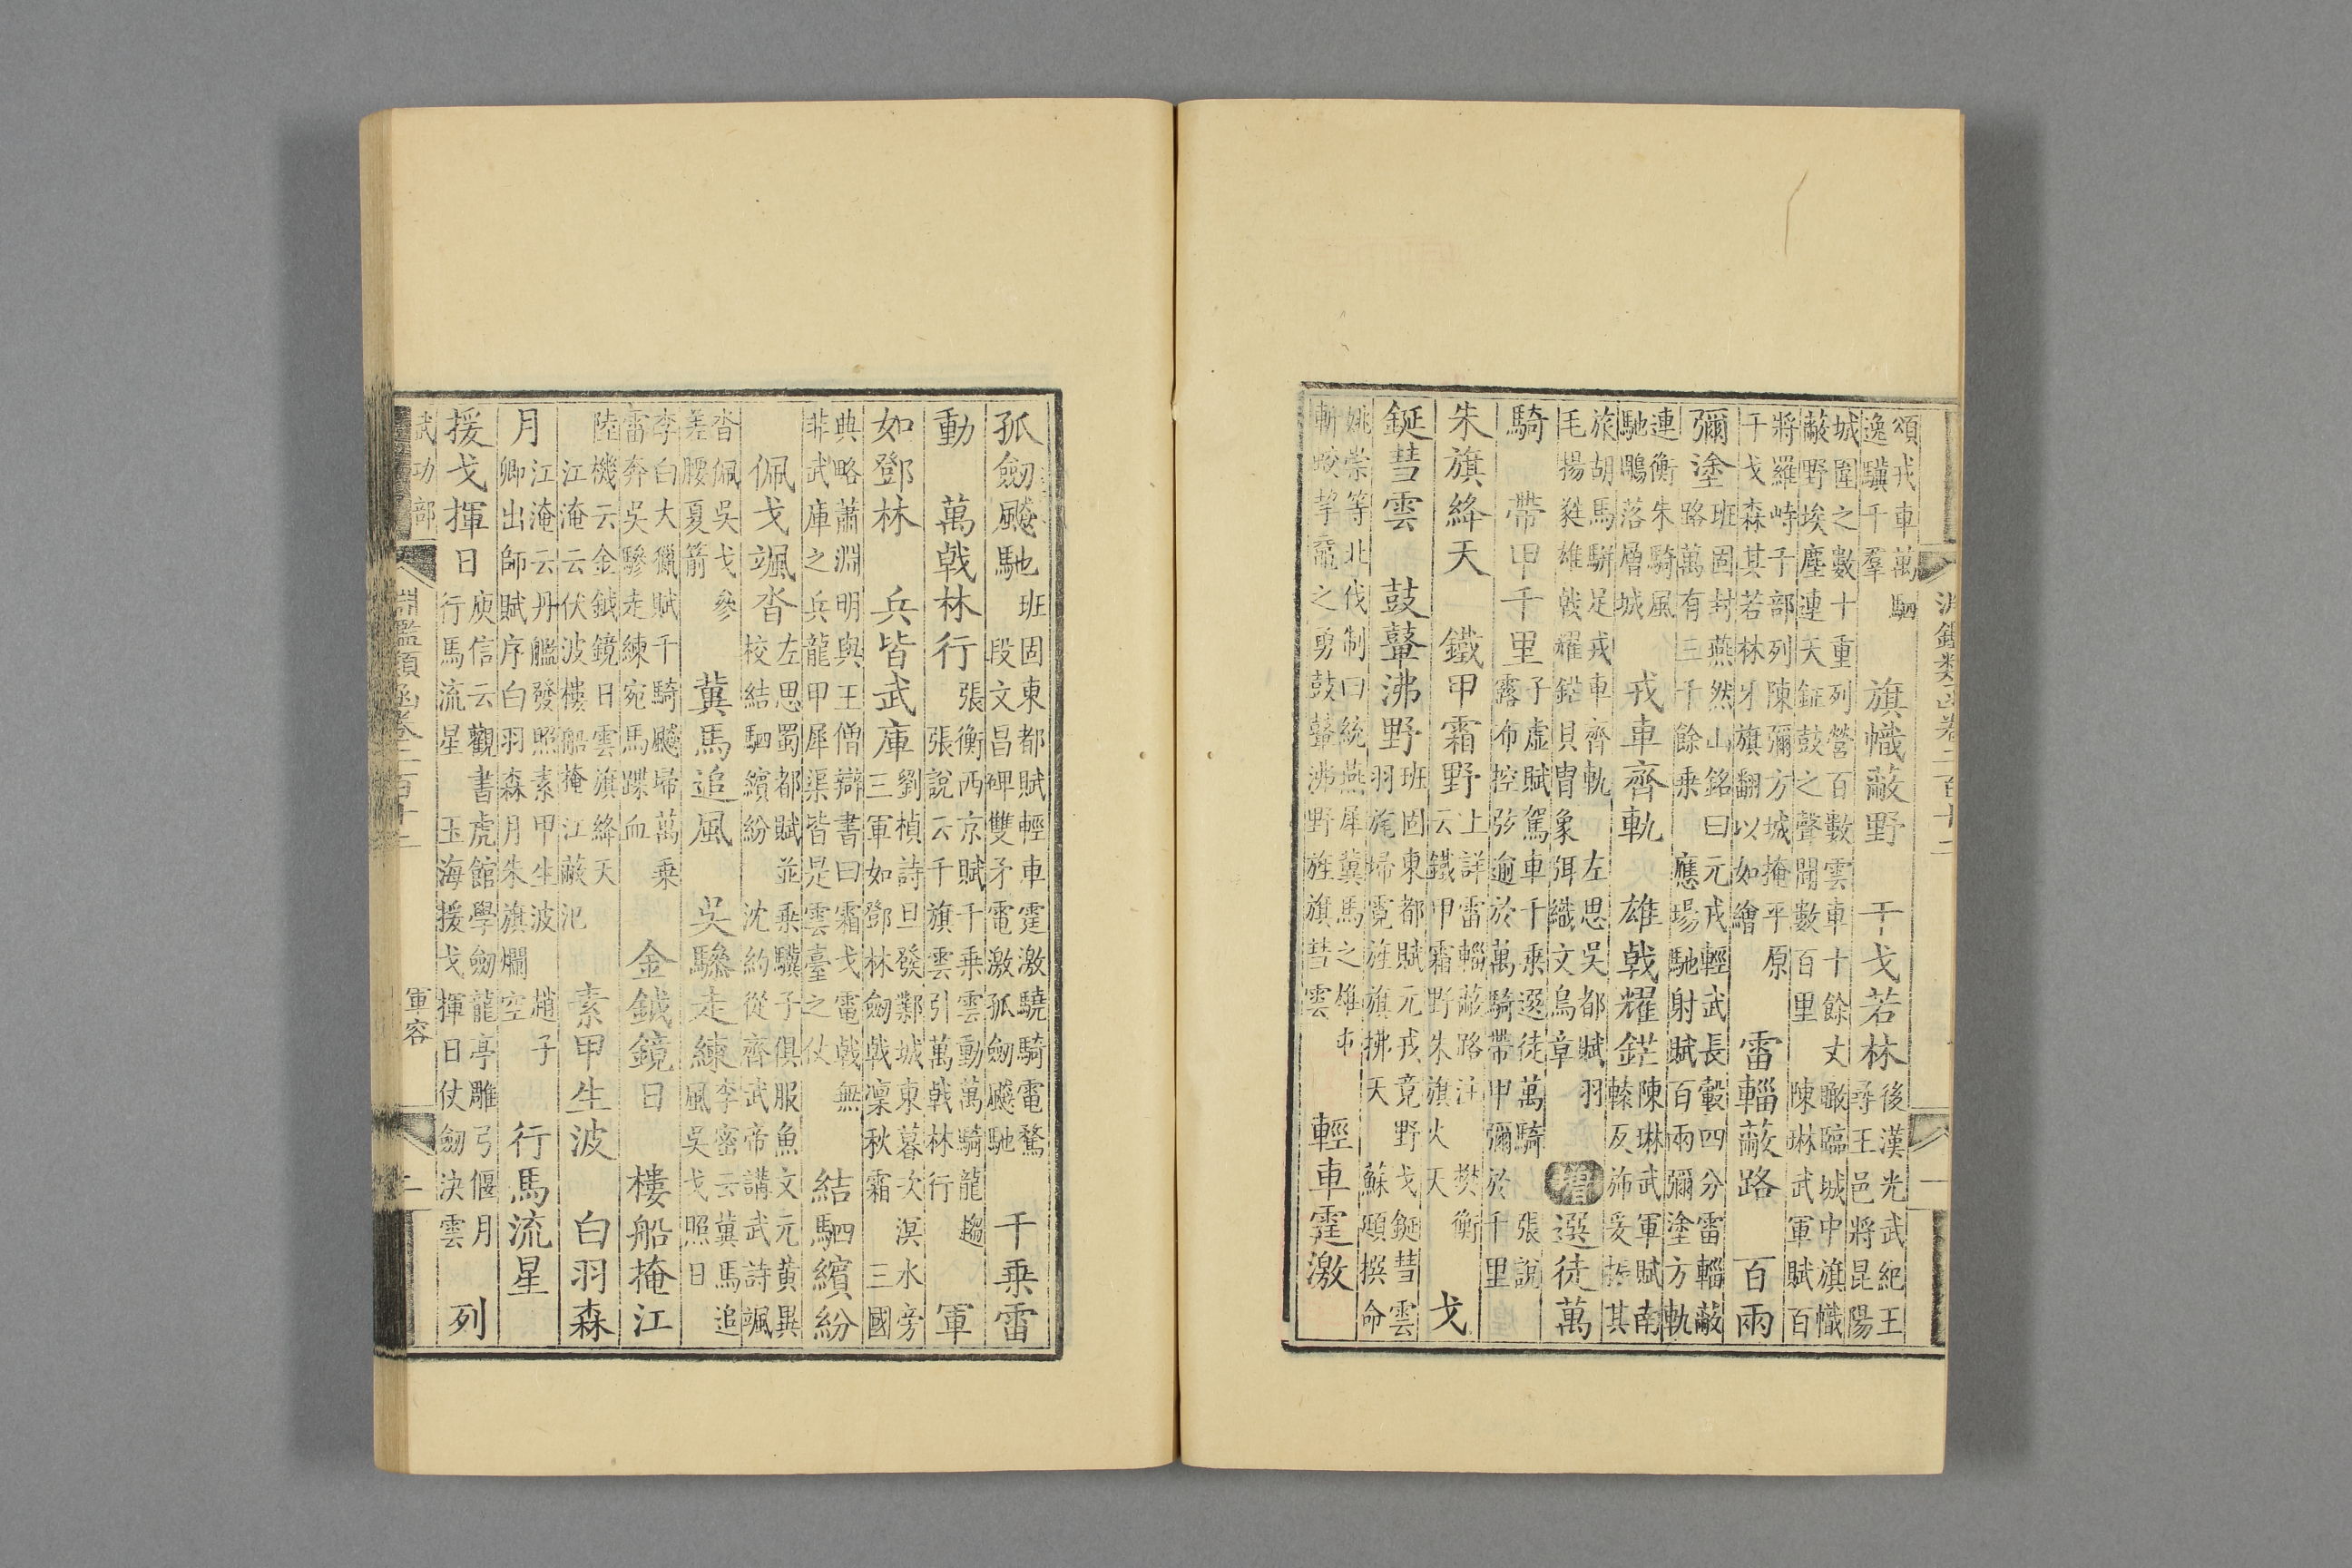 頌戎車萬駟
逸驥千羣
旗幟蔽野
干戈若林
後漢光武紀王
尋王邑將昆陽
城圍之數十重列營百數雲車十餘丈瞰臨城中旗幟
蔽野埃塵連天鉦鼓之聲聞數百里
陳琳武軍賦百
將羅峙千部列陳彌方城掩平原
干戈森其若林牙旗翻以如繪
雷輜蔽路
百兩
彌塗
班固封燕然山銘曰元戎輕武長轂四分雷輜蔽
路萬有三千餘乗
應瑒馳射賦百兩彌塗方軌
連衡朱騎風
馳鵰落層城
戎車齊軌
雄戟耀鋩
陳琳武軍賦南
轅反斾爰振其
旅胡馬駢足戎車齊軌
毛揚㲯雄戟耀鋩貝冑象弭織文鳥章
左思吳都賦羽
增
選徒萬
騎
帶甲千里
子虛賦駕車千乗選徒萬騎
張說
露布控弦逾於萬騎帶甲彌於千里
朱旗絳天
鐵甲霜野
上詳雷輜蔽路注
樊衡
云鐵甲霜野朱旗火天
戈
鋋彗雲
鼓鼙沸野
班固東都賦元戎竟野戈鋋彗雲
羽旄掃霓旌旗拂天
蘇頲撰命
姚崇等北伐制曰統燕犀冀馬之雄
斬蛟挈之勇鼓鼙沸野旌旗彗雲
輕車霆激
淵鑑類函卷二百十二
一
孤劒飈馳
班固東都賦輕車霆激驍騎電騖
段文昌碑雙矛電激孤劒飈馳
千乗雷
動
萬戟林行
張衡西京賦千乗雲動萬騎龍趨
張說云千旗雲引萬戟林行
軍
如鄧林
兵皆武庫
劉楨詩旦發鄴城東暮次溟水旁
三軍如鄧林劒戟凜秋霜
三國
典略蕭淵明與王僧辯書曰霜戈電戟無
非武庫之兵龍甲犀渠皆是雲臺之仗
結駟繽紛
佩戈颯沓
左思蜀都賦並乗驥子俱服魚文元黃異
校結駟繽紛
沈約從齊武帝講武詩颯
沓佩吳戈參
差腰夏箭
冀馬追風
吳驂走練
李密云冀馬追
風吳戈照日
李白大獵賦千騎飈掃萬乗
雷奔吳驂走練宛馬蹀血
金鉞鏡日
樓船掩江
陸機云金鉞鏡日雲旗絳天
江淹云伏波樓船掩江蔽汜
素甲生波
白羽森
月
江淹云丹艦發照素甲生波
趙子
卿出師賦序白羽森月朱旗爛空
行馬流星
援戈揮日
庾信云觀書虎館學劒龍亭雕弓偃月
行馬流星
玉海援戈揮日仗劒決雲
列
武功部
淵鑑類函卷二百十二
軍容
二